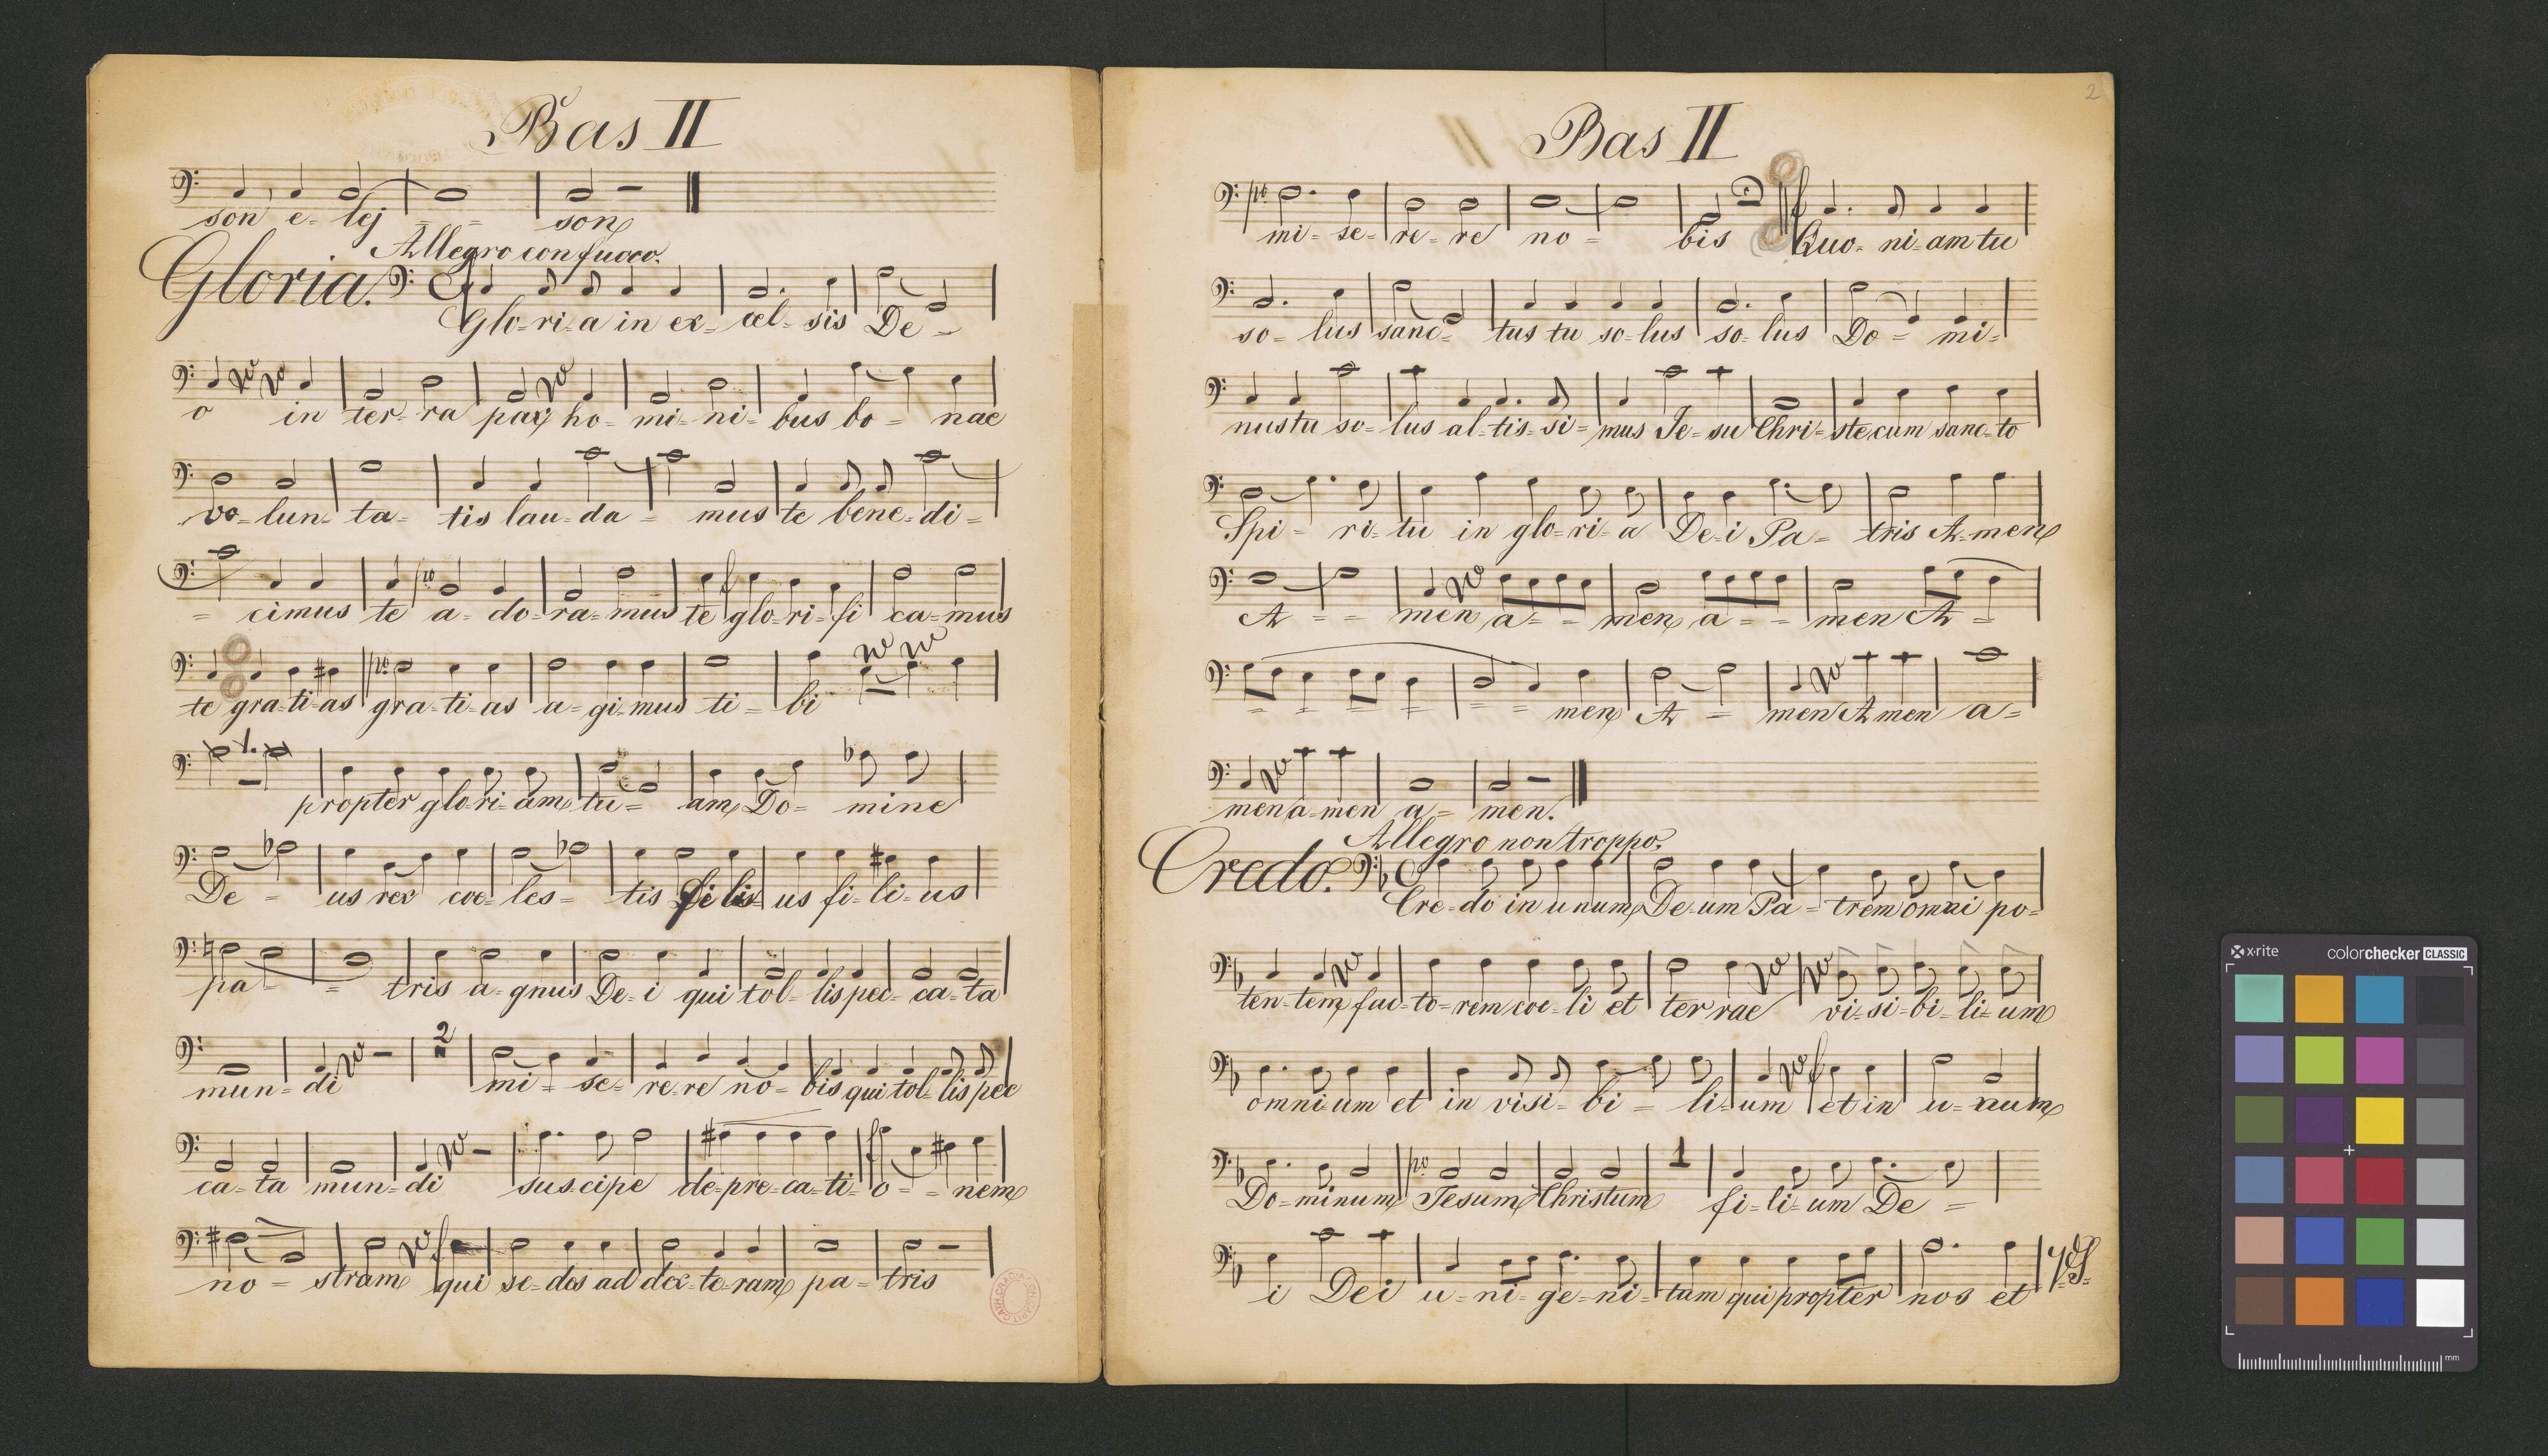 Bas II
son e- lej = = son
Allegro con fuoco.
Gloria.
Glo-ri-a in ex- cel- sis De- =
o in ter- ra pax ho- mi- ni- bus bo = nae
vo-lun- ta- tis lau-da = mus te bene-di=
= cimus te a- do-ra-mus te glo-ri-fi ca-mus
te gra-ti-as gra-ti-as a-gi-mus ti- bi
propter glo-ri-am tu= am Do= mine
De = us rex coe-les= tis us fi-li-us
pa= = tris a-gnus De-i qui tol-lis pec-ca-ta
mun-di 2 mi- se- re re no- bis qui tol-lis pec
ca-ta mun-di suscipe de-pre-ca-ti-o = nem
no = stram qui se-des ad dex-te-ram pa-tris
2
Bas II
mi- se- re- re no = bis Quo- ni-am tu
so- lus sanc- tus tu so-lus so-lus Do = mi-
nus tu so-lus al-tis-si-mus Je-su Chri-ste cum sanc-to
Spi- ri-tu in glo-ri-a De-i Pa = tris A-men
A = = men a= = men a= = men A =
= = = = = = men A = men A men a=
men a-men a- men.
Allegro non troppo.
Credo.
Cre-do in u num De-um Pa = trem omni po-
ten-tem fac-to-rem coe-li et ter rae vi-si-bi-li-um
omnium et in visi- bi = li-um et in u-num
Do-minum Jesum Christum 1 fi-li-um De =
i Dei u-ni-ge-ni-tum qui propter nos et
x-rite colorchecker CLASSIC
mm